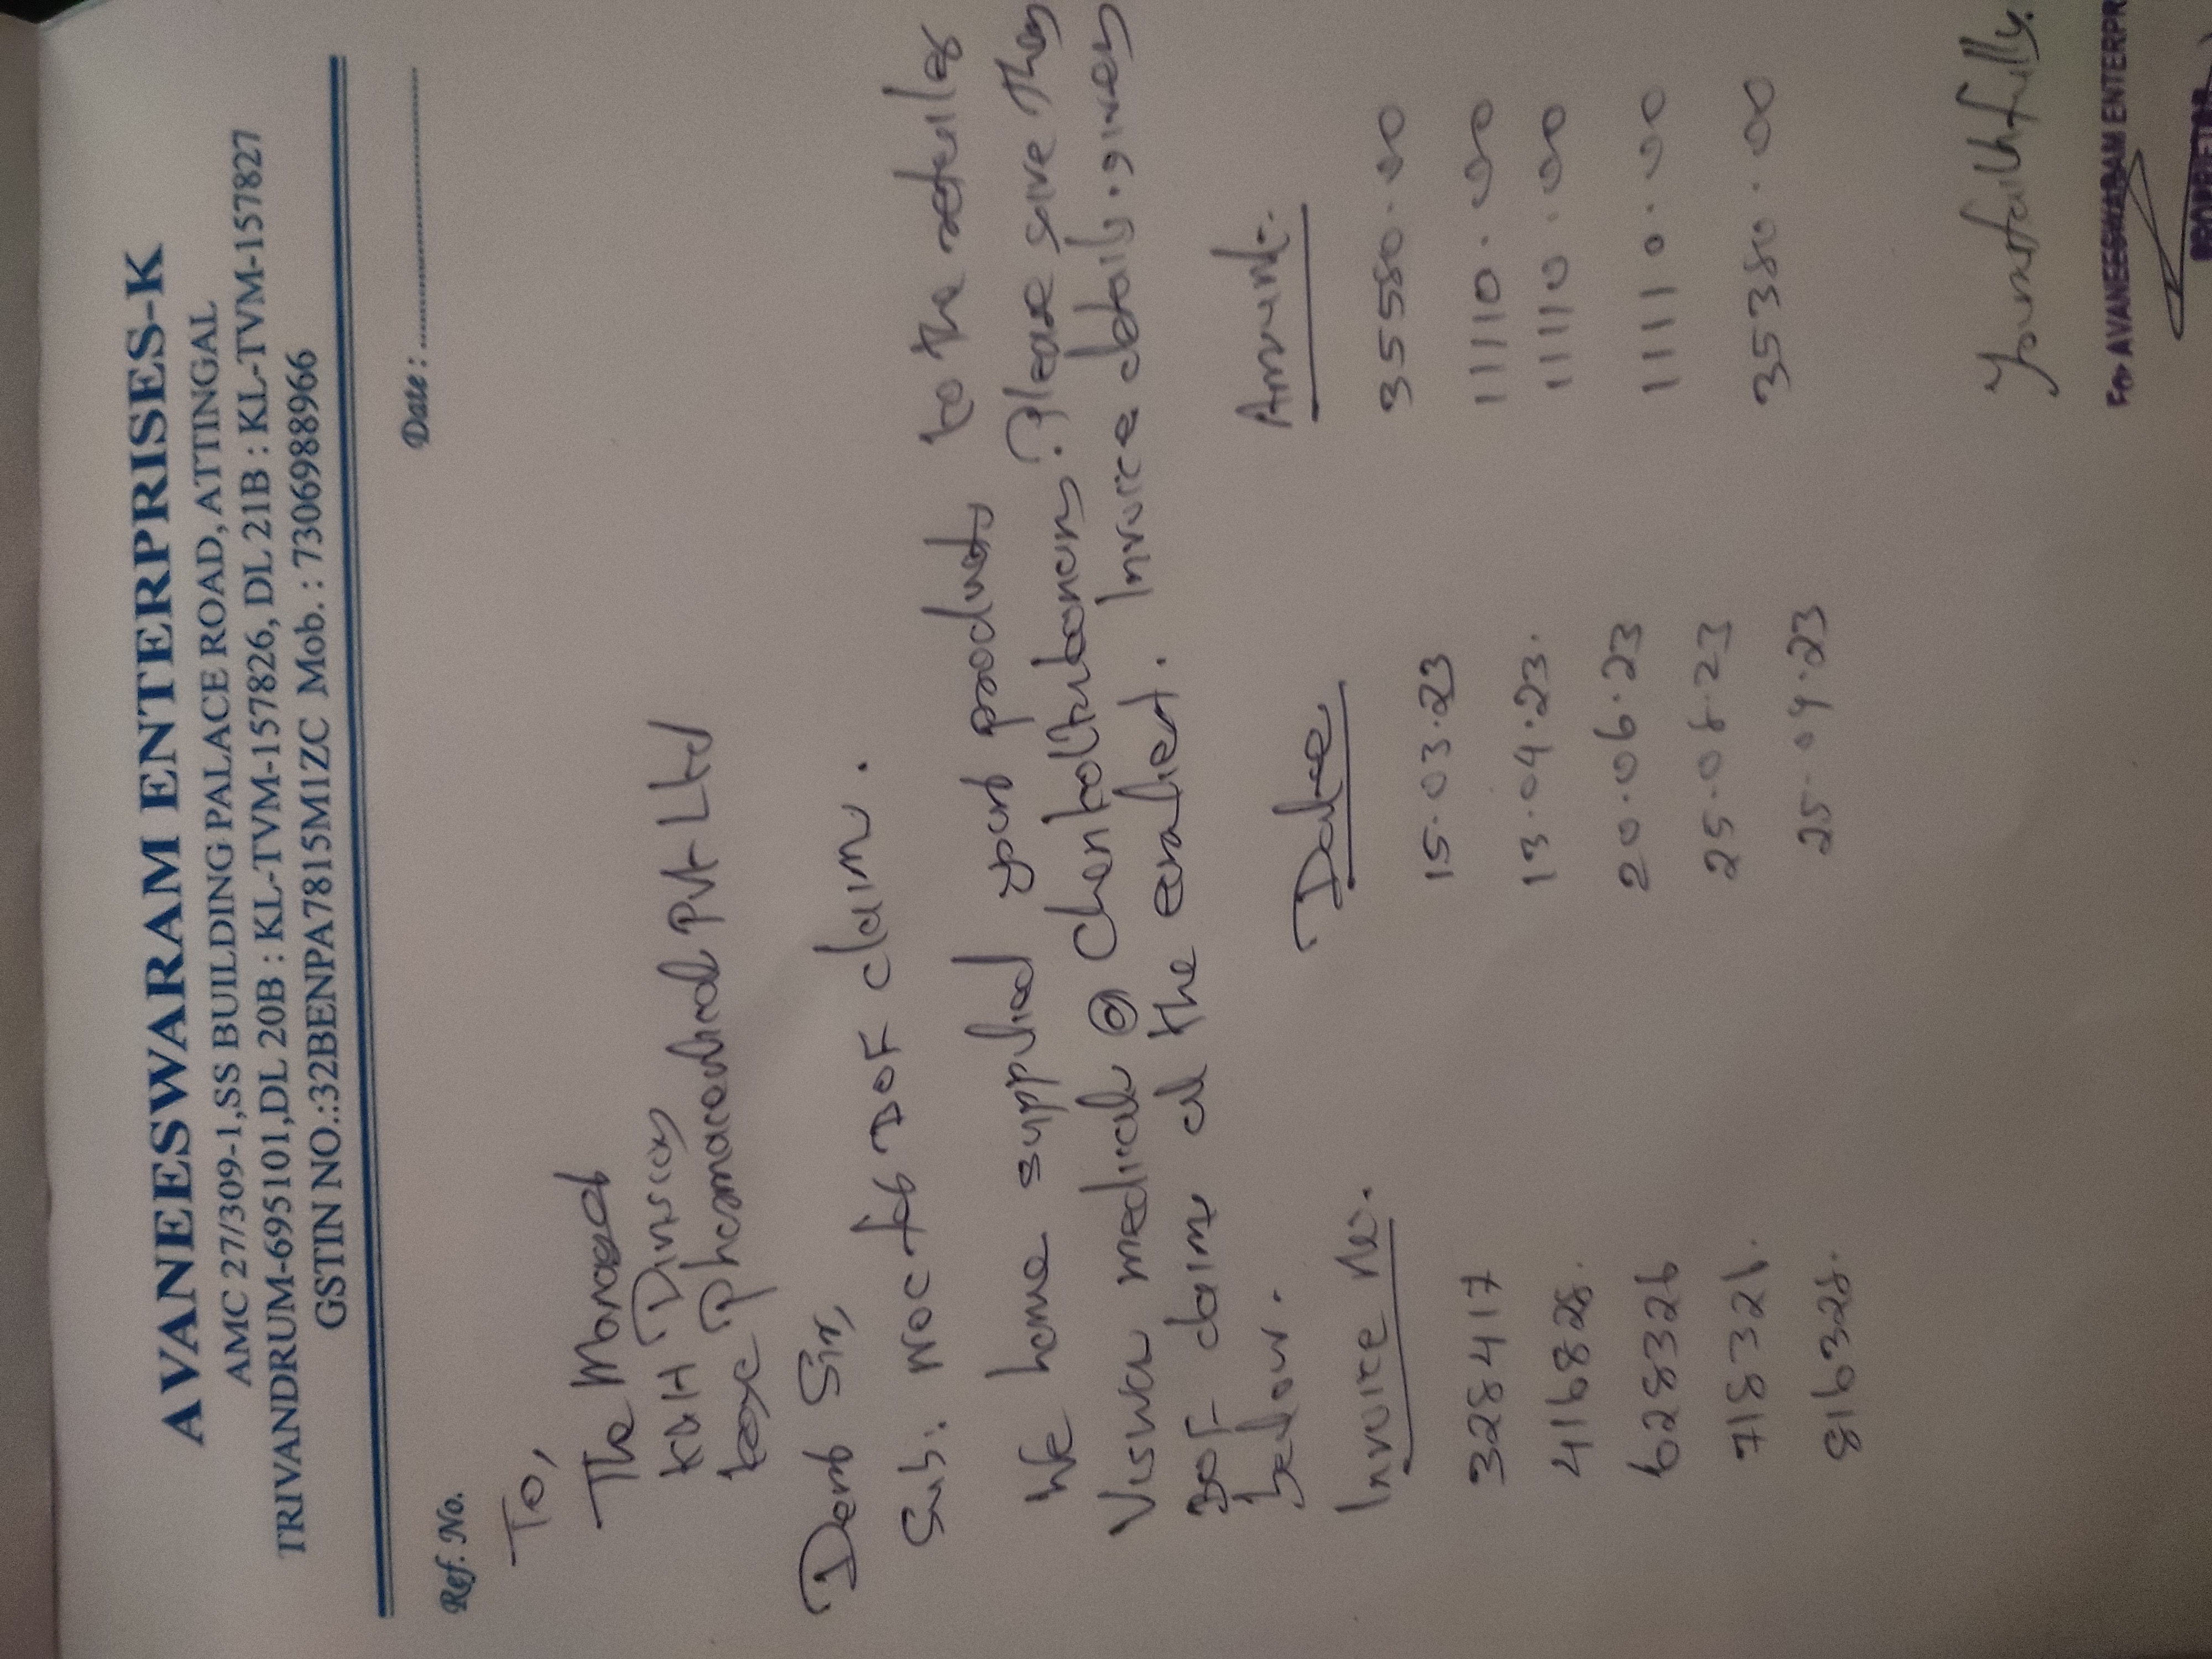 AVANEESWARAM ENTERPRISES-K
AMC 27/309-1,SS BUILDING PALACE ROAD, ATTINGAL
TRIVANDRUM-695101,DL 20B : KL-TVM-157826, DL 21B : KL-TVM-157827
GSTIN NO.:32BENPA7815M1ZC Mob. : 7306988966
Ref. No. Date :
To,
The Manager
KNH
Phamaceutical Pvt Ltd
Dear Sir,
Sub: NOC for DOF claim.
We have supplied your products to the retailer
Viswa medicals @ . Please give they
DOF claim at the earliest. Invoice details. given
below.
Invoice No. Date Amount.
328417 15.03.23 35580.00
416828. 13.04.23. 11110.00
628326 20.06.23 11110.00
718321. 25.08.23 11110.00
816328. 25.09.23 35380.00
Yours faithfully.
For AVANEESWARAM ENTERPR
PROPRIETOR